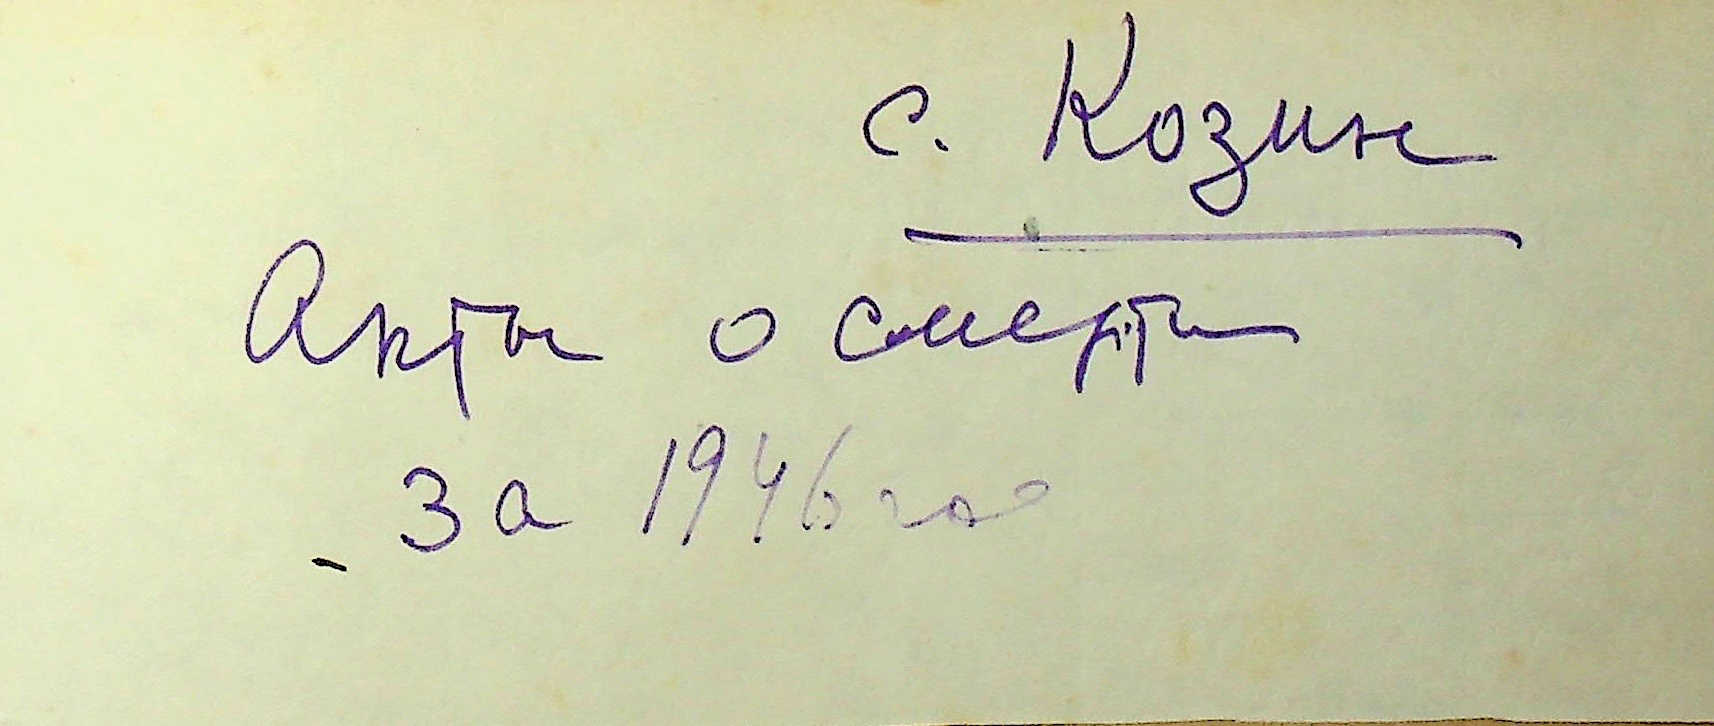 с. Козин
Акты о смерти
за 1946 год